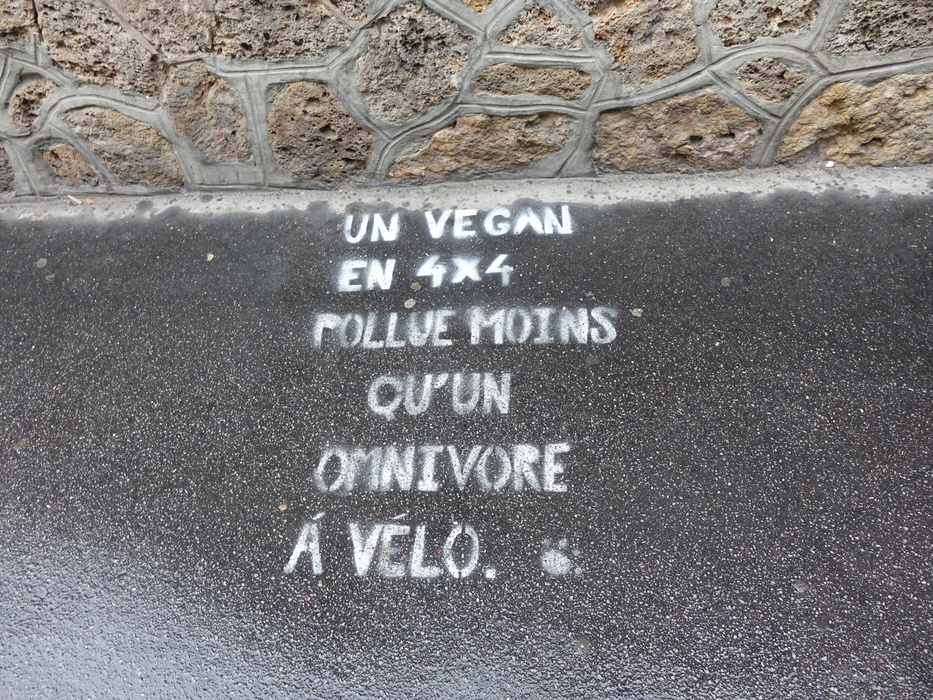 UN VEGAN
EN 4X4
POLLUE MOINS
QU'UN
OMNIVORE
Á VÉLO.